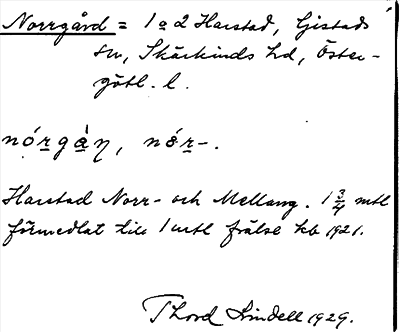 Norrgård = 1 o 2 Harstad, Gistads
sn, Skärkinds hd, Öster-
götl. l.
nórgàn, nór-.
Harstad Norr- och Mellang. 1 3/4 mtl
förmedlat till 1 mtl frälse kb 1921.
Thord Lindell 1929.